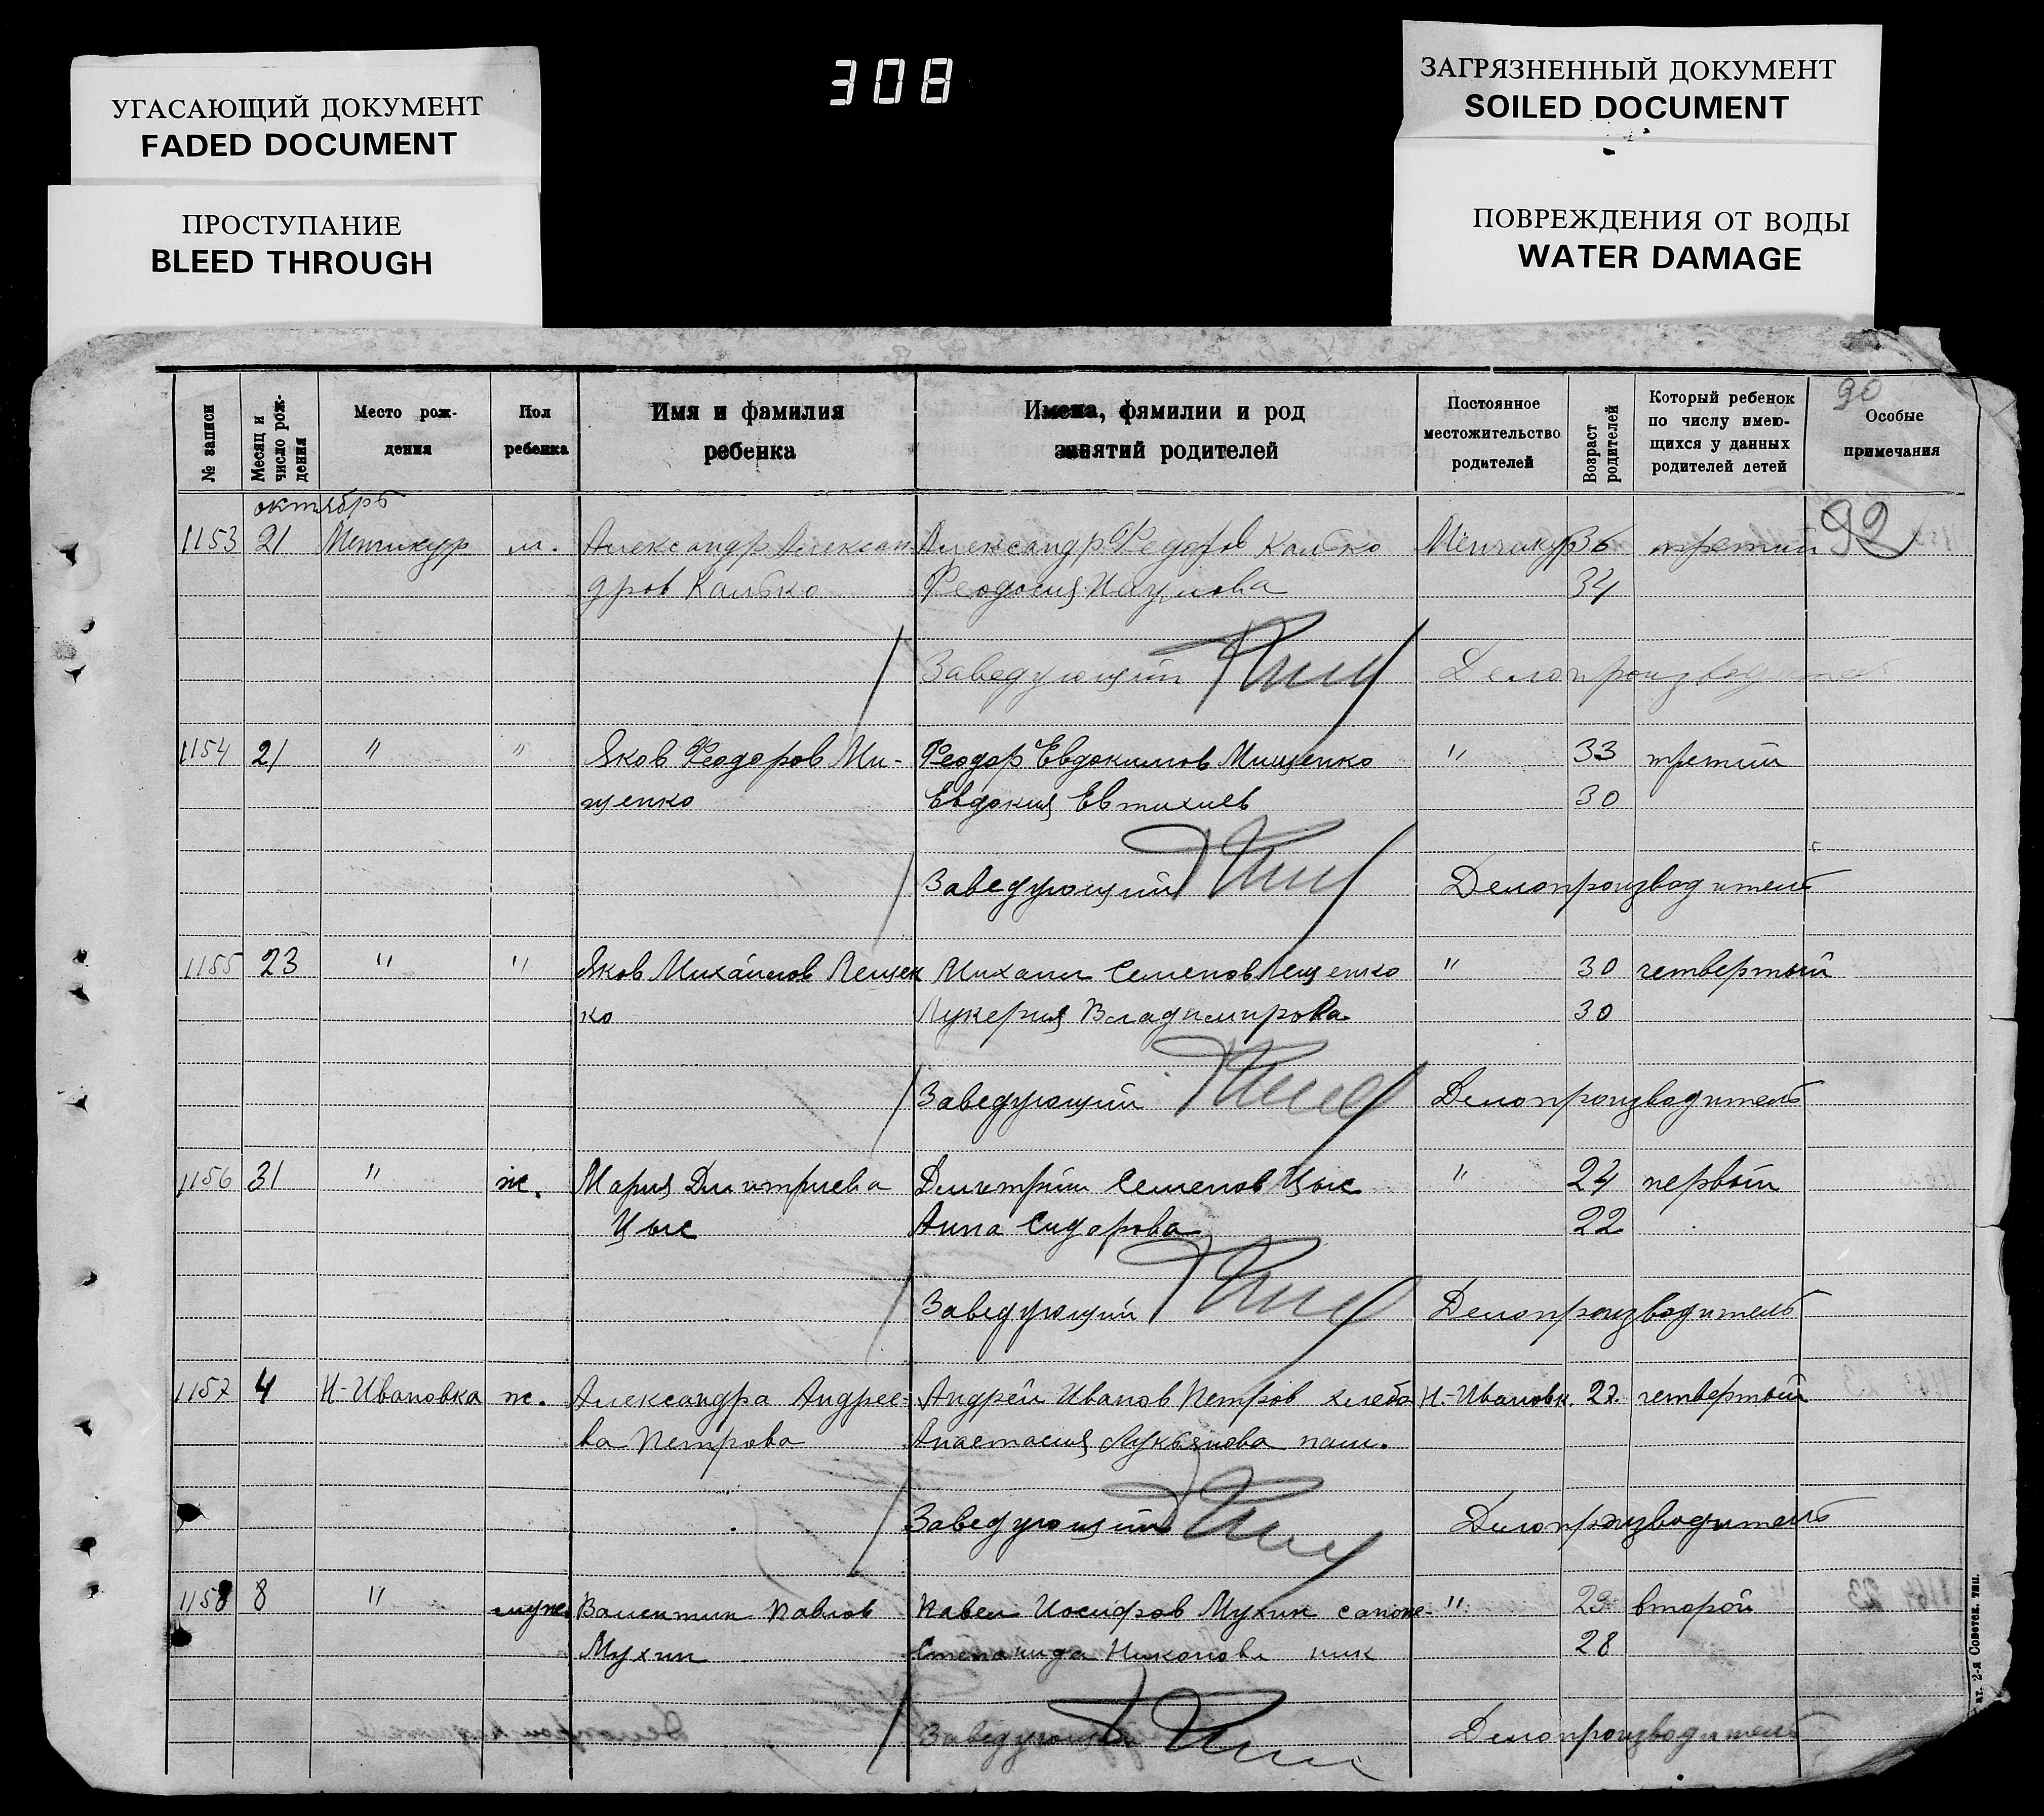 308
УГАСАЮЩИЙ ДОКУМЕНТ
FADED DOCUMENT
ПРОСТУПАНИЕ
BLEED THROUGH
ЗАГРЯЗНЕННЫЙ ДОКУМЕНТ
SOILED DOCUMENT
ПОВРЕЖДЕНИЯ ОТ ВОДЫ
WATER DAMAGE
90
№ записи
Месяц и число рож-дения
Место рож-дения
Пол ребенка
Имя и фамилия ребенка
Имена, фямилии и род занятий родителей
Постоянное местожительство родителей
Возраст родителей
Который ребенок по числу имею-щихся у данных родителей детей
Особые примечания
октябрь
92
1153 21 м. Александр Алексан Александр Федоров Калько 36 третий
дров Калько Феодосия Наумова 34
Заведующий Делопроизводитель
1154 21 " " Яков Феодоров Ми- Феодор Евдокимов Мищенко " 33 третий
щенко Евдокия Евтихиев 30
Заведующий Делопроизводитель
1155 23 " " Яков Михайлов Лещен Михаил Семенов Лещенко " 30 четвертый
ко Лукерия Владимирова 30
Заведующий Делопроизводитель
1156 31 " ж. Мария Димитриева Димитрий Семенов Цыс " 24 первый
Цыс Анна Сидорова 22
Заведующий Делопроизводитель
1157 4 Н-Ивановка ж. Александра Андрее- Андрей Иванов Петров хлебо Н.-Ивановк. 27. четвертый
ва Петрова Анастасия Лукьянова паш.
Заведующий Делопроизводитель
1158 8 " муж. Валентин Павлов Павел Иосифов Мухин сапож- " 29 второй
Мухин Степанида Никонова ник 28
Заведующий Делопроизводитель
ат. 2-я Советск. тип.